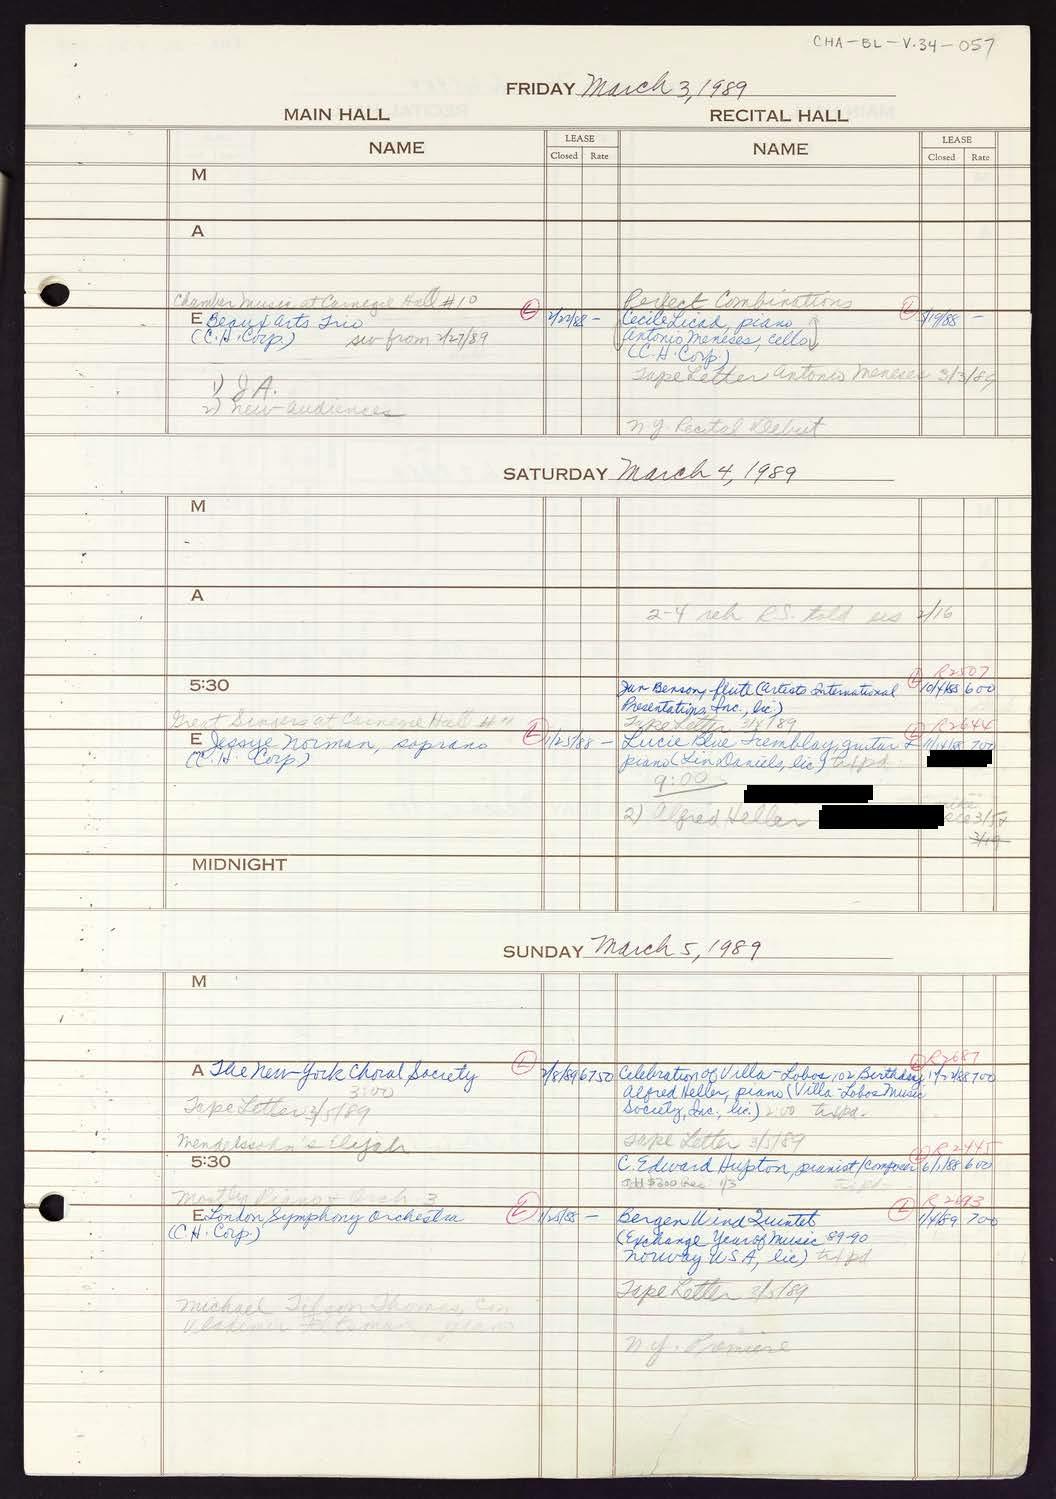 CHA-BL-V.34-057
FRIDAY March 3, 1989
MAIN HALL
RECITAL HALL
NAME
LEASE
Closed Rate
NAME
LEASE
Closed Rate
M
A
Chamber Music at Carnegie Hall #10
E Beaux Arts Trio
(C.H. Corp.) sw from 2/27/89
L 2/22/88 -
1) J.A.
2) New Audiences
Perfect Combinations
Cecile Licad, piano
Antonio Meneses, cello
(C.H. Corp)
L /19/88 -
Tape Letter Antonio Meneses 3/3/89
N.Y. Recital Debut
SATURDAY March 4, 1989
M
A
2-4 reh R.S. told 2/16
5:30
Great Singers at Carnegie Hall #
E Jessye Norman, soprano
(C.H. Corp)
L 1/25/88 -
R2507
Jan Benson, flute (Artists International L 10/4/88 600
Presentations, Inc., lic)
Tape Letter 3/4/89
R2644
Lucie Blue Tremblay, guitar & L 11/14/88 700
piano (Lin Daniels, lic)
9:00
2) Alfred Heller
3/5
3/19
MIDNIGHT
SUNDAY March 5, 1989
M
A The New York Choral Society L 2/8/89 6750
3:00
Tape Letter 3/5/89
Mendelssohn's Elijah
R2687
Celebration of Villa-Lobos 102 Birthday 700
Alfred Heller, piano (Villa-Lobos Music
Society, Inc., lic.) 2:00
Tape Letter 3/5/89
5:30
R2445
C. Edward Hupton, pianist/composer L 6/1/88 600
Mostly Piano & Orch 3
E London Symphony Orchestra
(C.H. Corp.)
L 1/25/88 -
R2693
Bergen Wind Quintet L 1/4/89 700
(Exchange Year of Music 89-90
Norway U.S.A, lic)
Tape Letter 3/5/89
Michael Tilson Thomas, Con
Vladimir Feltsman, piano
N.Y. Premiere